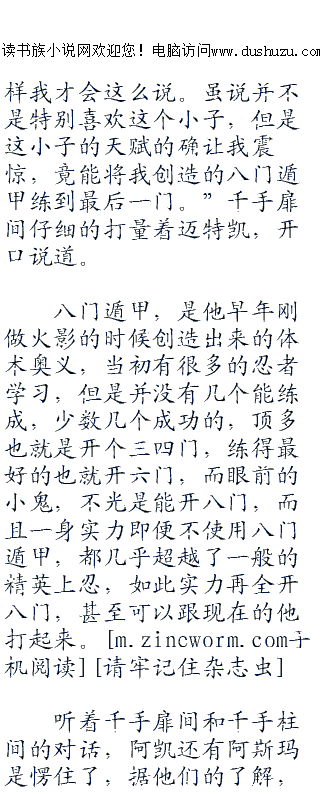 读书族小说网欢迎您！电脑访问www.dushuzu.com
样我才会这么说。虽说并不
是特别喜欢这个小子，但是
这小子的天赋的确让我震
惊，竟能将我创造的八门遁
甲练到最后一门。”千手扉
间仔细的打量着迈特凯，开
口说道。
八门遁甲，是他早年刚
做火影的时候创造出来的体
术奥义，当初有很多的忍者
学习，但是并没有几个能练
成，少数几个成功的，顶多
也就是开个三四门，练得最
好的也就开六门，而眼前的
小鬼，不光是能开八门，而
且一身实力即便不使用八门
遁甲，都几乎超越了一般的
精英上忍，如此实力再全开
八门，甚至可以跟现在的他
打起来。[m.zincworm.com手
机阅读][请牢记住杂志虫]
听着千手扉间和千手柱
间的对话，阿凯还有阿斯玛
是愣住了，据他们的了解，